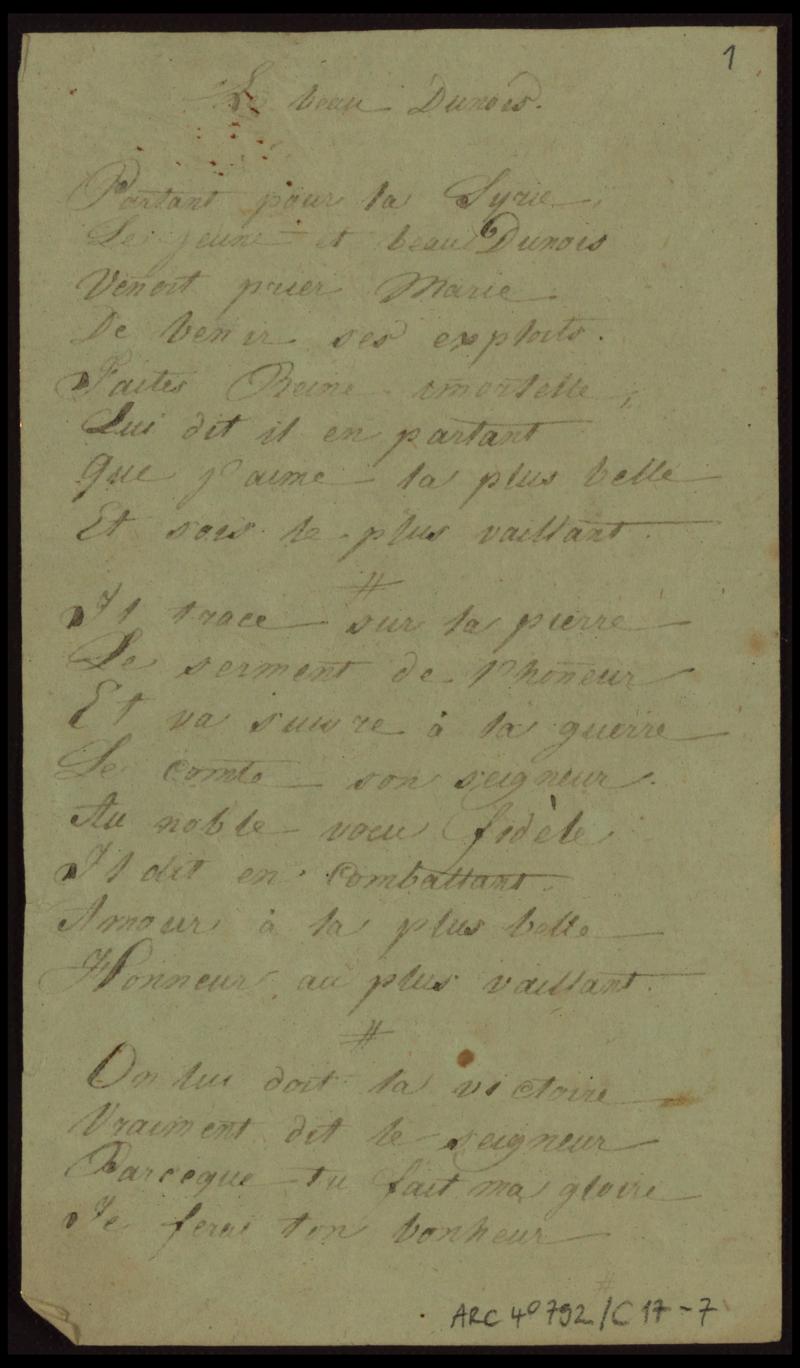 1
Le beau Dunois.
Partant pour la Syrie,
Le jeune et beau Dunois
Venoit prier Marie
De benir ses exploits.
Faites Reine immortelle,
Lui dit il en partant
Que j'aime la plus belle
Et sois le plus vaillant.
#
Il trace sur la pierre
Le serment de l'honneur
Et va suivre à la guerre
Le comte son seigneur.
Au noble voeu fidèle
Il dit en combattant.
Amour à la plus belle
Honneur au plus vaillant.
#
On lui doit la victoire
Vraiment dit le seigneur
Parceque tu fait ma gloire
Je ferai ton bonheur
ARC 4° 792/C17-7